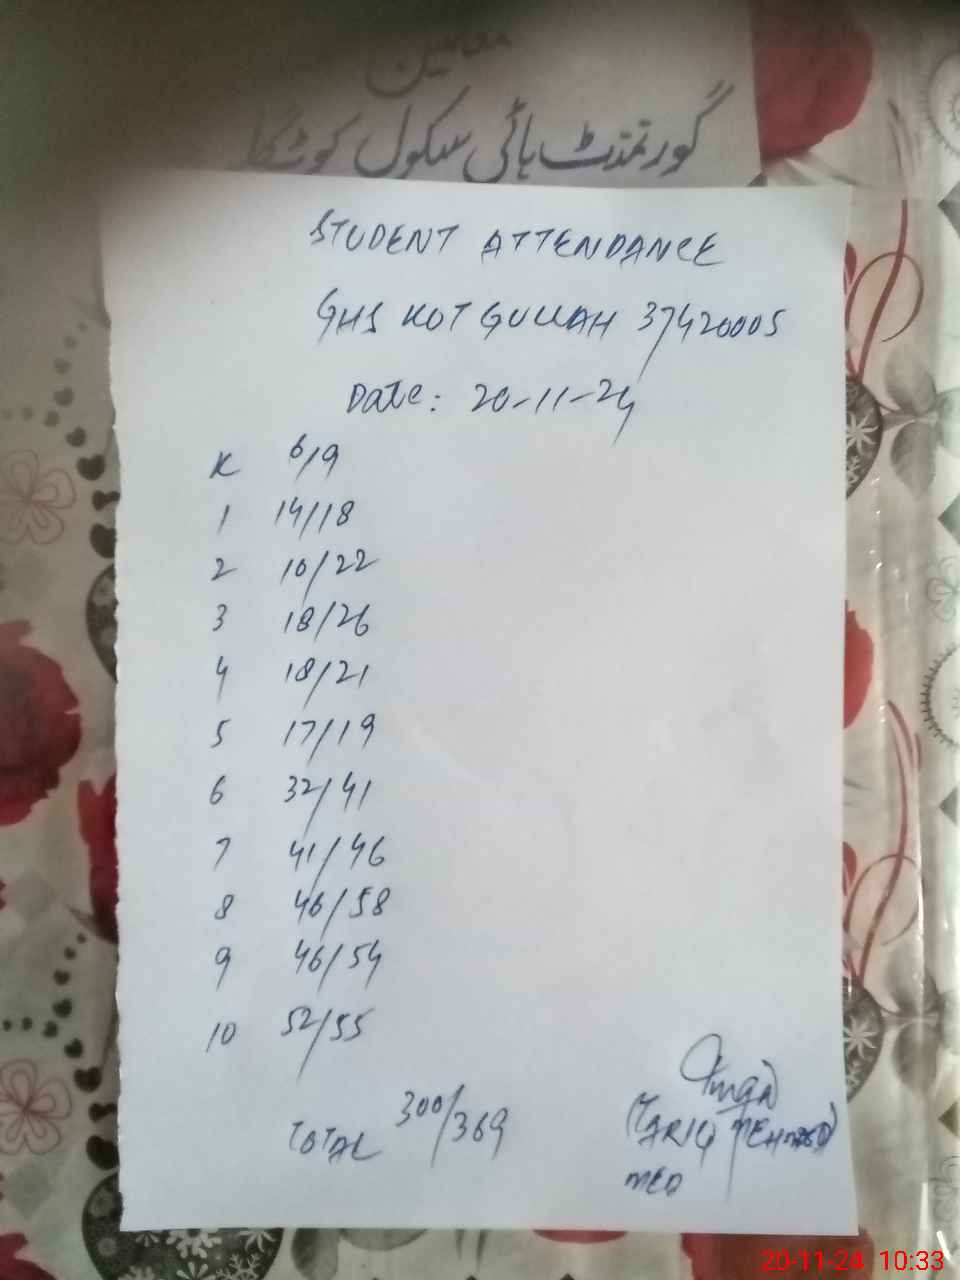 گورنمنٹ ہائی سکول کوٹگلہ
STUDENT ATTENDANCE
GHS KOT GULLAH 37420005
Date: 20-11-24
K 6/9
1 14/18
2 10/22
3 18/26
4 18/21
5 17/19
6 32/41
7 41/46
8 46/58
9 46/54
10 52/55
TOTAL 300/369
(TARIQ MEHMOOD)
MEA
20-11-24 10:33